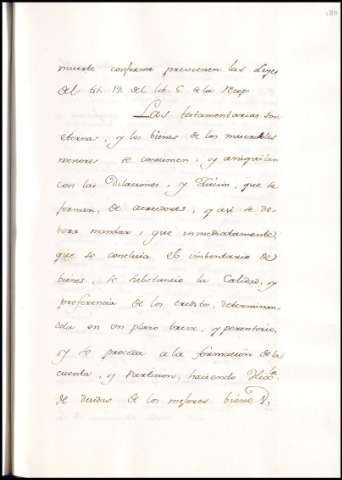 muerte conforme previenen las Leyes
del tit. 19. del lib. 5. de la Recop.
Las testamentarias son
eternas, y los bienes de los miserables
menores se consumen, y aniquilan
con las Dilaciones, y que se
forman, de acreedores, y asi se de-
bera mandar, que inmediatamente
que se concluia el imbentario de
bienes, se substancie la Calidad, y
preferencia de los creditos, determinan
dola en un plazo breve, y perentorio,
y se proceda a la formacion de la
cuenta, y Particion, haciendo
de deudas de los mejores bienes